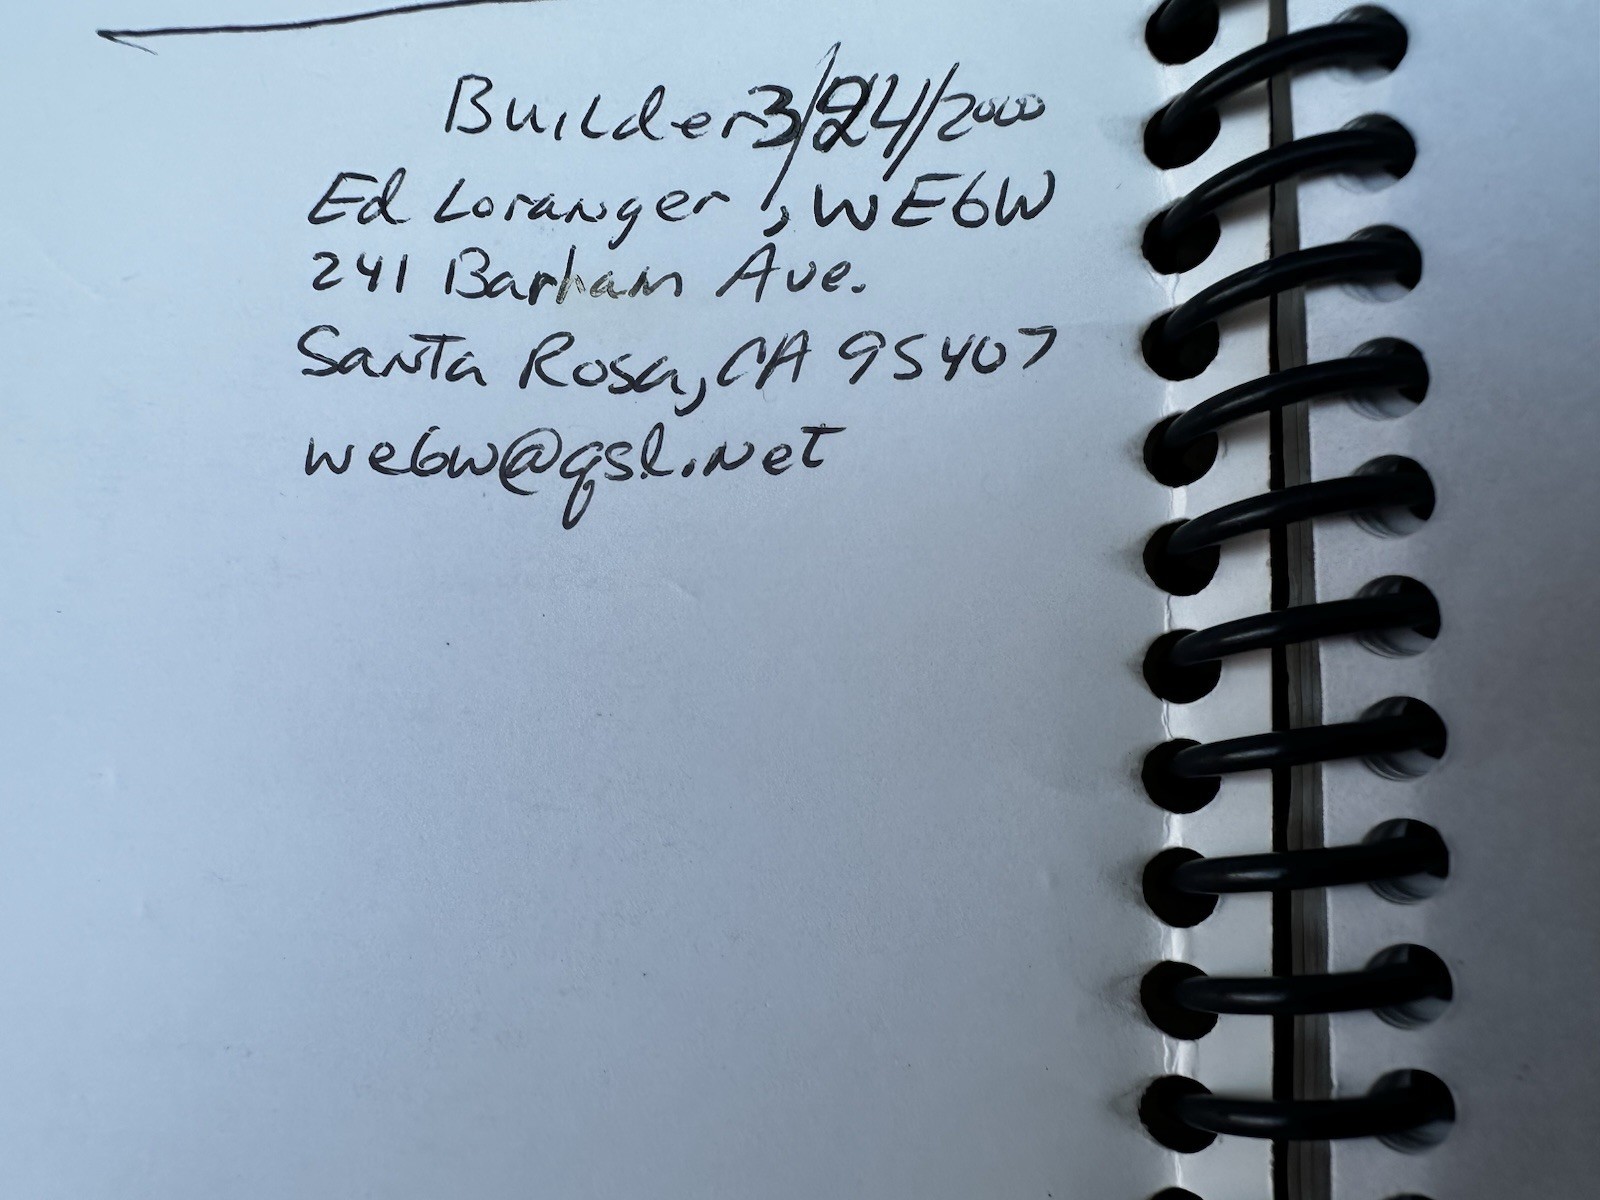 Builder 3/24/2000
Ed Loranger, WE6W
241 Barham Ave.
Santa Rosa, CA 95407
we6w@qsl.net